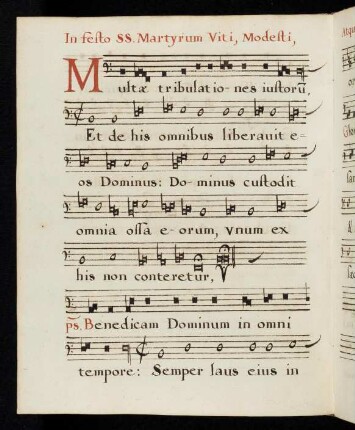 In festo SS. Martyrum Viti, Modesti,
Multæ tribulatio- nes iustorū,
Et de his omnibus liberauit e-
os Dominus: Do- minus custodit
omnia ossa e- orum, vnum ex
his non conteretur,
ps. Benedicam Dominum in omni
tempore: Semper laus eius in